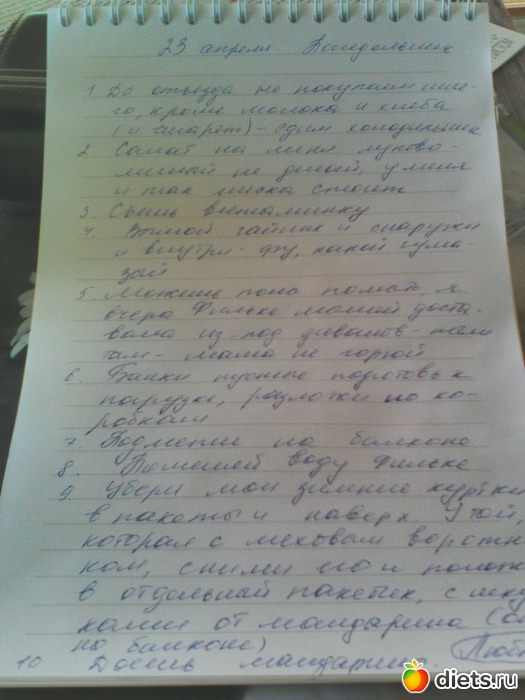 23 апреля Понедельник
1. До отъезда не покупаем ниче-
го, кроме молока и хлеба
(и сигарет) - едим холодильник
2. Салат на меня луково-
яичный не делай, у меня
и так миска стоит
3. Съешь витаминку
4. Вымой чайник и снаружи
и внутри - фу, какой чума-
зай
5. Можешь пола помыть, я
вчера Фильке мячей доста-
вала из-под дивана - там
там - мама не горюй
6. Банки пустые подготовь к
погрузке, разложи по ко-
робкам
7. Подмети на балконе
8. Поменяй воду Фильке
9. Убери мои зимние куртки
в пакеты и наверх. У той,
которая с меховым воротн
ком, сними его и полож
в отдельный пакетик, с шку
ками от мандарина (
на балконе)
10 Доешь мандарины.
diets.ru